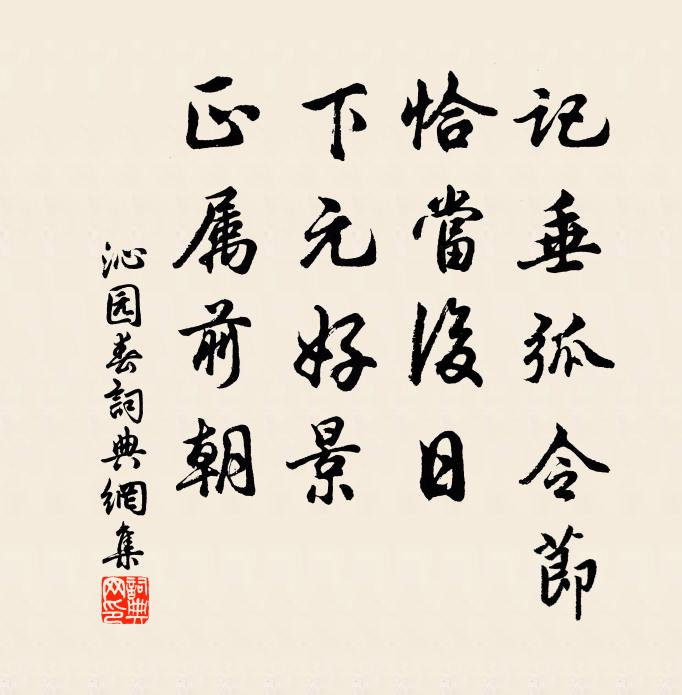 记垂弧令節
恰當後日
下元好景
正属前朝
沁园春詞典網集
詞典网印